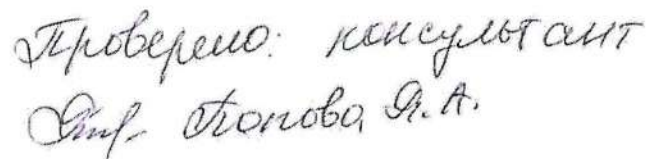 Проверено: консультант
Попова Я. А.